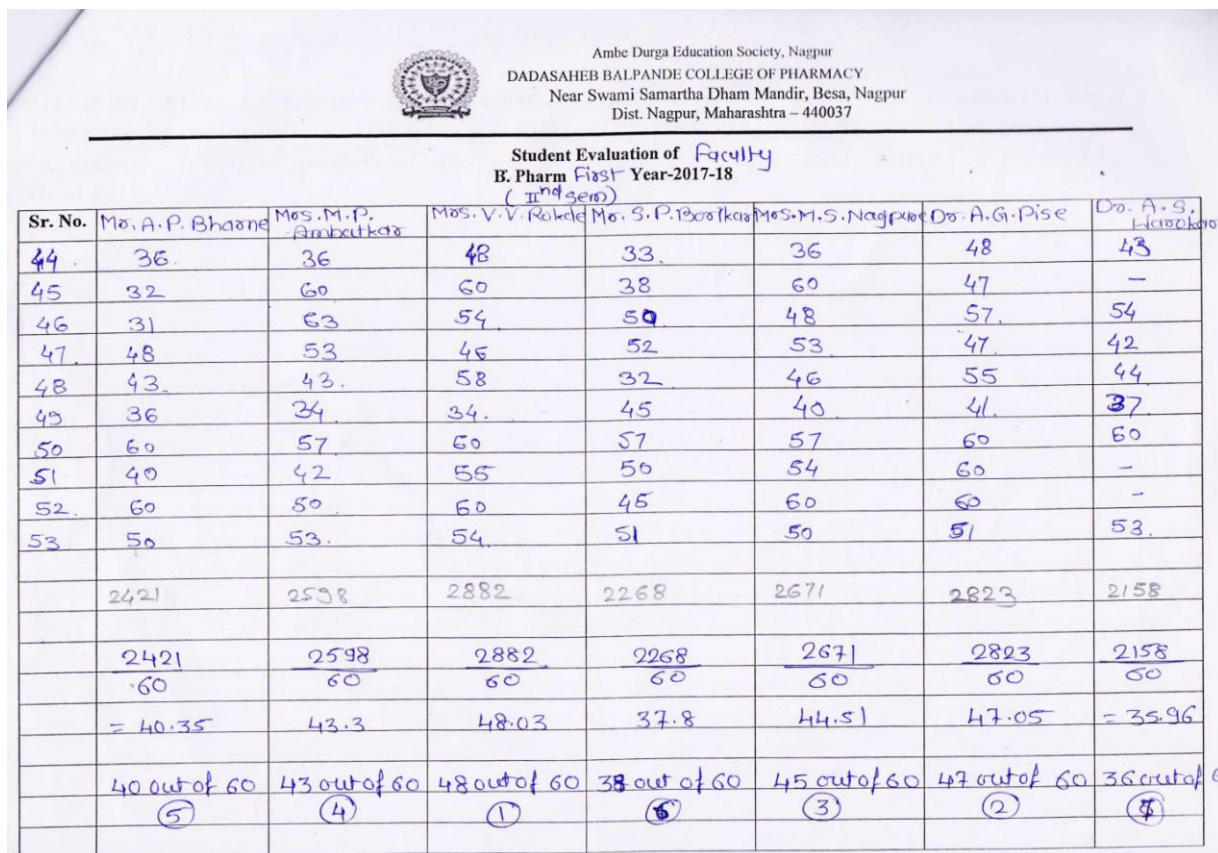 Ambe Durga Education Society, Nagpur
DADASAHEB BALPANDE COLLEGE OF PHARMACY
Near Swami Samartha Dham Mandir, Besa, Nagpur
Dist. Nagpur, Maharashtra – 440037
Student Evaluation of Faculty
B. Pharm First Year-2017-18
( IInd sem)
Sr. No. Mr. A. P. Bharne Mrs. M. P. Ambatkar Mrs. V. V. Rokde Mr. S. P. Borikar Mrs. M. S. Nagpure Dr. A. G. Pise Dr. A. S.
44 36. 36 48 33. 36 48 43
45 32 60 60 38 60 47 –
46 31 63 54 50 48 57. 54
47. 48 53 46 52 53 47. 42
48 43. 43. 58 32 46 55 44
49 36 34. 34. 45 40. 41. 37.
50 60 57. 60 57 57 60 60
51 40 42 55 50 54 60 –
52. 60 50 60 45 60 60 –
53 50 53. 54. 51 50 51 53.
2421 2598 2882 2268 2671 2823 2158
2421 2598 2882 2268 2671 2823 2158
60 60 60 60 60 60 60
= 40.35 43.3 48.03 37.8 44.51 47.05 = 35.96
40 out of 60 43 out of 60 48 out of 60 38 out of 60 45 out of 60 47 out of 60 36 out of 6
5 4 1 6 3 2 7